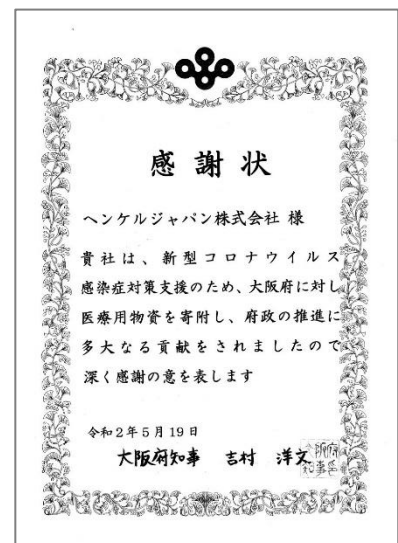 感謝状
ヘンケルジャパン株式会社 様
貴社は、新型コロナウイルス
感染症対策支援のため、大阪府に対し
医療用物資を寄附し、府政の推進に
多大なる貢献をされましたので
深く感謝の意を表します
令和2年5月19日
大阪府知事 吉村 洋文